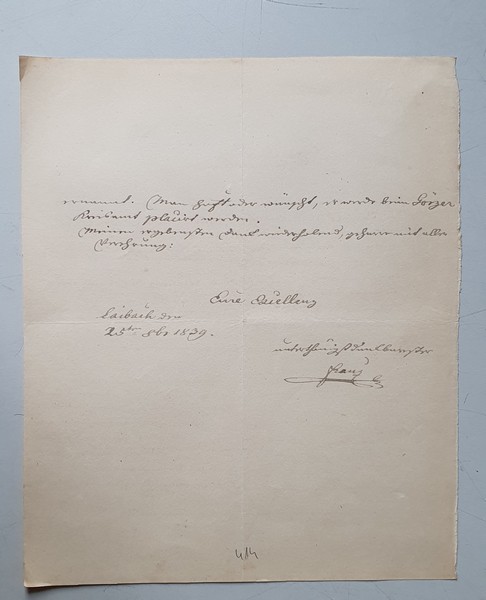 ernannt. Man hofft oder wünscht, er werde beim Görzer
Kreisamt placirt werden.
Meinen ergebensten Dank wiederholend, geharre mit aller
Verehrung:
Eure Excellenz
Laibach den
25ten 8br 1839.
unterthänigst dankbarster
Franz
414